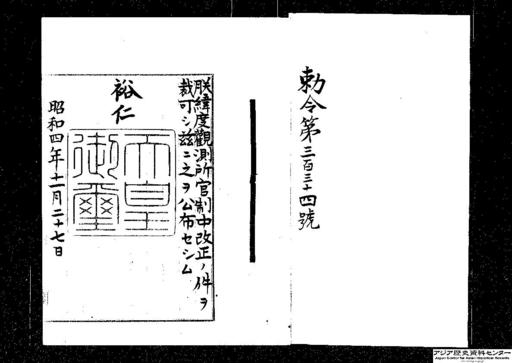 勅令第三百三十四號
朕緯度觀測所官制中改正ノ件ヲ
裁可シ玆ニ之ヲ公布セシム
裕仁
天皇御璽
昭和四年十一月二十七日
アジア歴史資料センター
Japan Center for Asian Historical Records